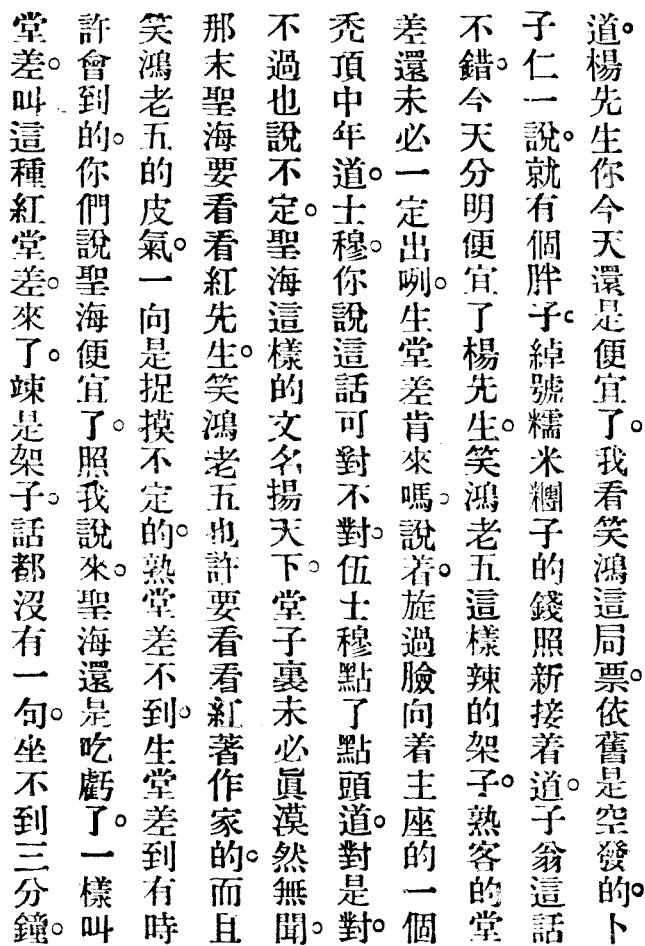 道。楊先生你今天還是便宜了。我看笑鴻這局票。依舊是空發的。卜
子仁一說。就有個胖子。綽號糯米糰子的錢照新接着道。子翁這話
不錯。今天分明便宜了楊先生。笑鴻老五這樣辣的架子。熟客的堂
差還未必一定出咧。生堂差肯來嗎。說着。旋過臉向着主座的一個
禿頂中年道。士穆。你說這話可對不對。伍士穆點了點頭道。對是對。
不過也說不定。聖海這樣的文名揚天下。堂子裏未必眞漠然無聞。
那末聖海要看看紅先生。笑鴻老五也許要看看紅著作家的。而且
笑鴻老五的皮氣。一向是捉摸不定的。熟堂差不到。生堂差到有時
許會到的。你們說聖海便宜了。照我說來。聖海還是吃虧了。一樣叫
堂差。叫這種紅堂差。來了。竦是架子。話都沒有一句。坐不到三分鐘。